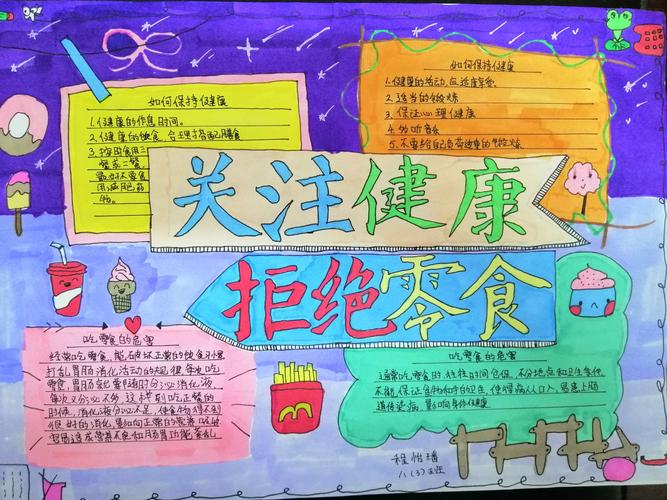 如何保持健康
1.健康的作息时间。
2.健康的饮食,合理搭配膳食
3.按时食用三
餐或二餐,
最好不零食
用
物。
如何保持健康
1.健康的活动,应适度
2.适当的锻炼
3.保证心理健康
4.多听音乐
5.不要给自己负荷过重的锻炼
关注健康
拒绝零食
吃零食的危害
经常吃零食,能破坏正常的饮食习惯
打乱胃肠消化活动的规律,每次吃
零食,胃肠就要随时分泌消化液,
每次又分泌不多,这样到吃正餐的
时候,消化液分泌不足,使食物得不到
很好的消化,影响正常的营养吸收
容易造成营养不良和胃肠功能紊乱
吃零食的危害
通常吃零食时,往往时间仓促,不分地点和卫生条件,
不能保证食物和手的卫生,使得病从口入,易患上肠
道传染病,影响身体健康
程怡璠
八(3)班